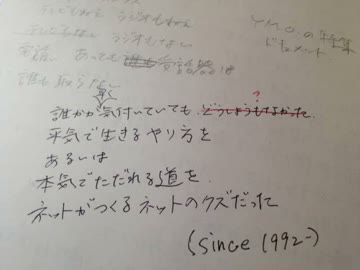 テレビもねえ ラジオもねえ
テレビもない ラジオもない
電話 あっても 誰も受話器は
誰も取らない
YMO.の
ドキュメント
早く
誰かが気付いていても どうしようもなかった ?
平気で生きるやり方を
あるいは
本気でただれる道を
ネットがつくるネットのクズだった
(since 1992-)